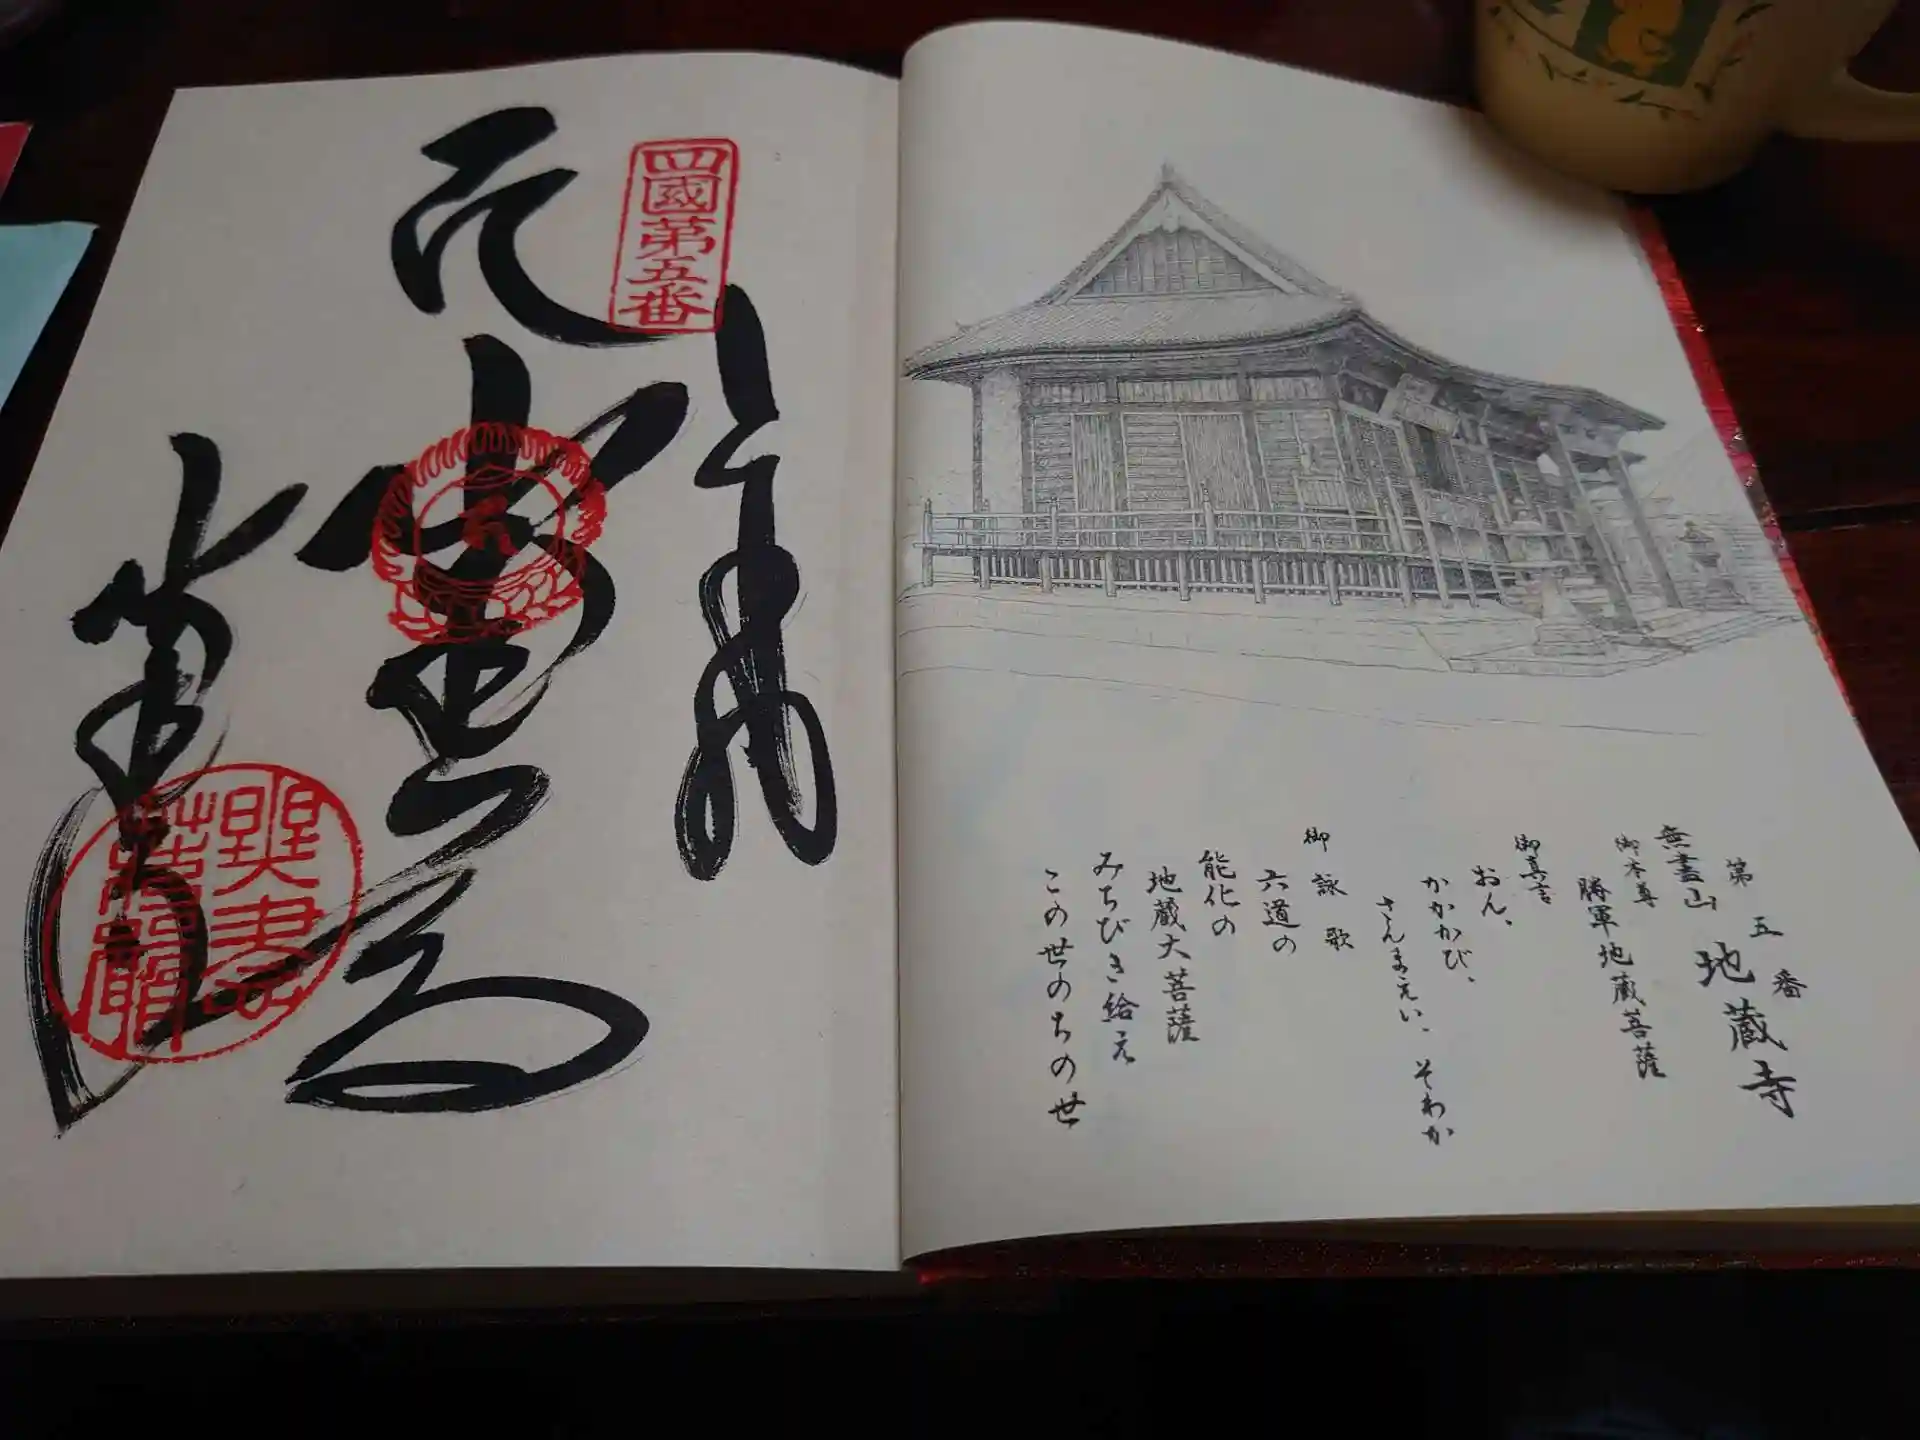 第五番
無盡山 地蔵寺
御本尊
勝軍地蔵菩薩
御真言
おん、
かかかび、
さんまえい、そわか
御詠歌
六道の
能化の
地蔵大菩薩
みちびき給え
この世のちの世
四國第五番
奉納
地蔵寺